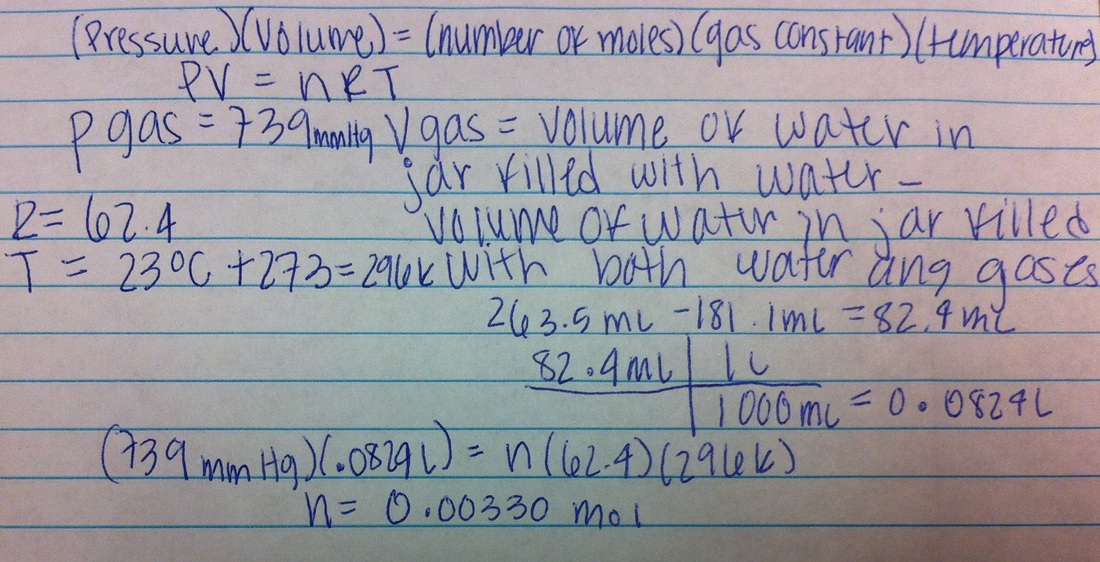 (Pressure)(Volume) = (number of moles)(gas constant)(temperature)
PV = nRT
P gas = 739mmHg V gas = volume of water in
jar filled with water -
R = 62.4 volume of water in jar filled
T = 23°C + 273 = 296K with both water and gases
263.5 mL - 181.1mL = 82.4 mL
82.4 mL | 1L
1000 mL = 0.0824L
(739 mmHg)(.0824L) = n(62.4)(296K)
n = 0.00330 mol